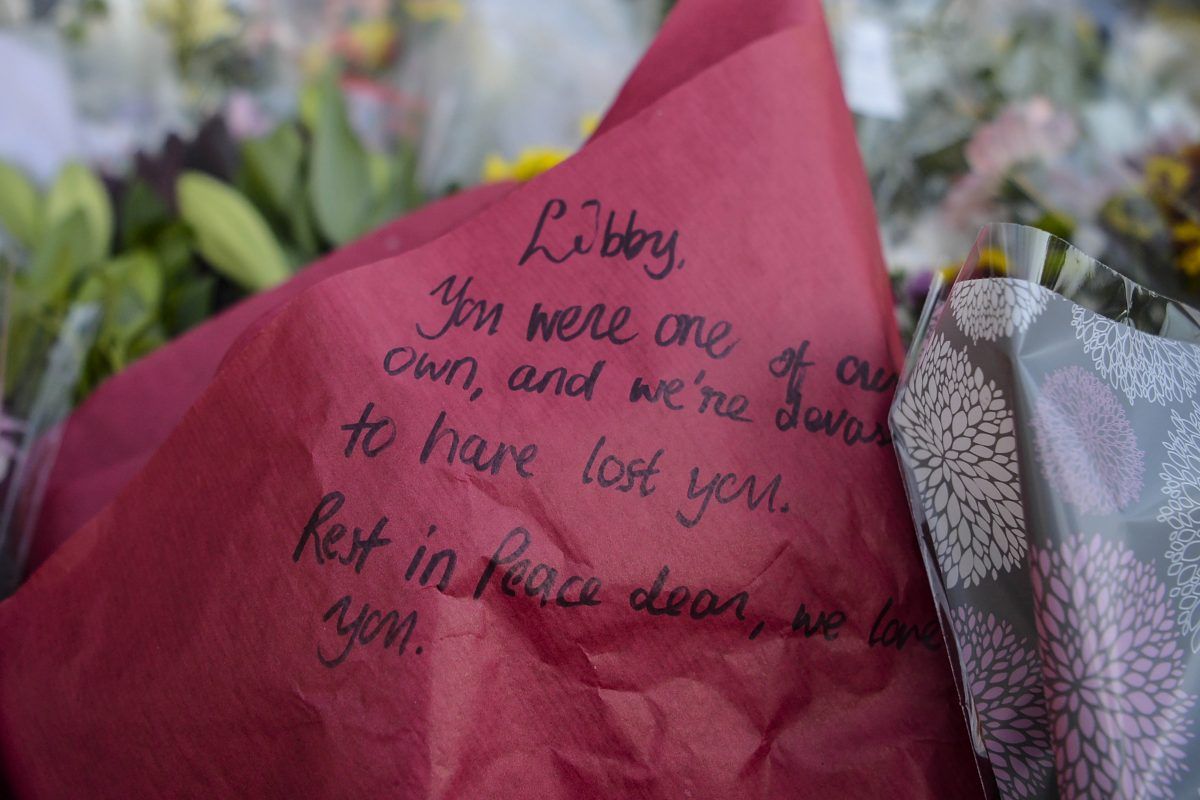 Libby,
You were one of our
own, and we're devas
to have lost you.
Rest in Peace dear, we love
you.